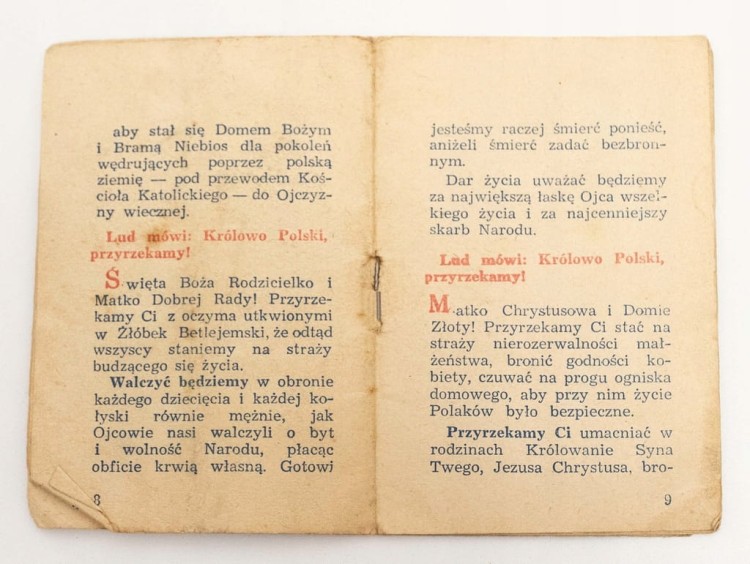 aby stał się Domem Bożym
i Bramą Niebios dla pokoleń
wędrujących poprzez polską
ziemię — pod przewodem Koś-
cioła Katolickiego — do Ojczyz-
ny wiecznej.
Lud mówi: Królowo Polski,
przyrzekamy!
Święta Boża Rodzicielko i
Matko Dobrej Rady! Przyrze-
kamy Ci z oczyma utkwionymi
w Żłóbek Betlejemski, że odtąd
wszyscy staniemy na straży
budzącego się życia.
Walczyć będziemy w obronie
każdego dziecięcia i każdej ko-
łyski równie mężnie, jak
Ojcowie nasi walczyli o byt
i wolność Narodu, płacąc
obficie krwią własną. Gotowi
8
jesteśmy raczej śmierć ponieść,
aniżeli śmierć zadać bezbron-
nym.
Dar życia uważać będziemy
za największą łaskę Ojca wszel-
kiego życia i za najcenniejszy
skarb Narodu.
Lud mówi: Królowo Polski,
przyrzekamy!
Matko Chrystusowa i Domie
Złoty! Przyrzekamy Ci stać na
straży nierozerwalności mał-
żeństwa, bronić godności ko-
biety, czuwać na progu ogniska
domowego, aby przy nim życie
Polaków było bezpieczne.
Przyrzekamy Ci umacniać w
rodzinach Królowanie Syna
Twego, Jezusa Chrystusa, bro-
9